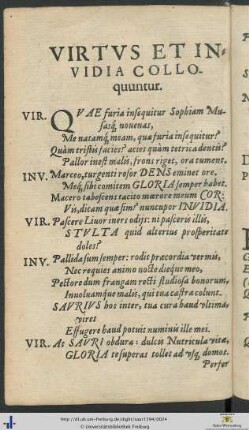 VIRTVS ET IN-
VIDIA COLLO-
quuntur.
VIR. QVAE furia insequitur Sophiam Mu-
sasq; nouenas,
Me natamq; meam, quæ furia insequitur?
Quàm tristis facies? acies quàm tetrica dentis?
Pallor inest malis, frons riget, ora tument.
INV. Marceo, turgenti rosor DENS eminet ore.
Meq; sibi comitem GLORIA semper habet.
Macero tabescens tacito mærore meum COR:
Vis, dicam quæ sim? nuncupor INVIDIA.
VIR. Pascere Liuor iners odijs: ni pasceris illis,
STVLTA quid alterius prosperitate
doles?
INV. Pallida sum semper: rodit præcordia vermis,
Nec requies animo nocte dieq; meo,
Pectore dum frangam recti studiosa bonorum,
Inuoluamq; malis, qui tua castra colunt.
SAVRIVS hos inter, tua cura baud vltima,
vires
Effugere baud potuit numinis ille mei.
VIR. At SAVRI obdura: dulcis Nutricula vitæ,
GLORIA te superas tollet ad vsq; domos.
Perfer
http://dl.ub.uni-freiburg.de/diglit/sauri1594/0024
© Universitätsbibliothek Freiburg